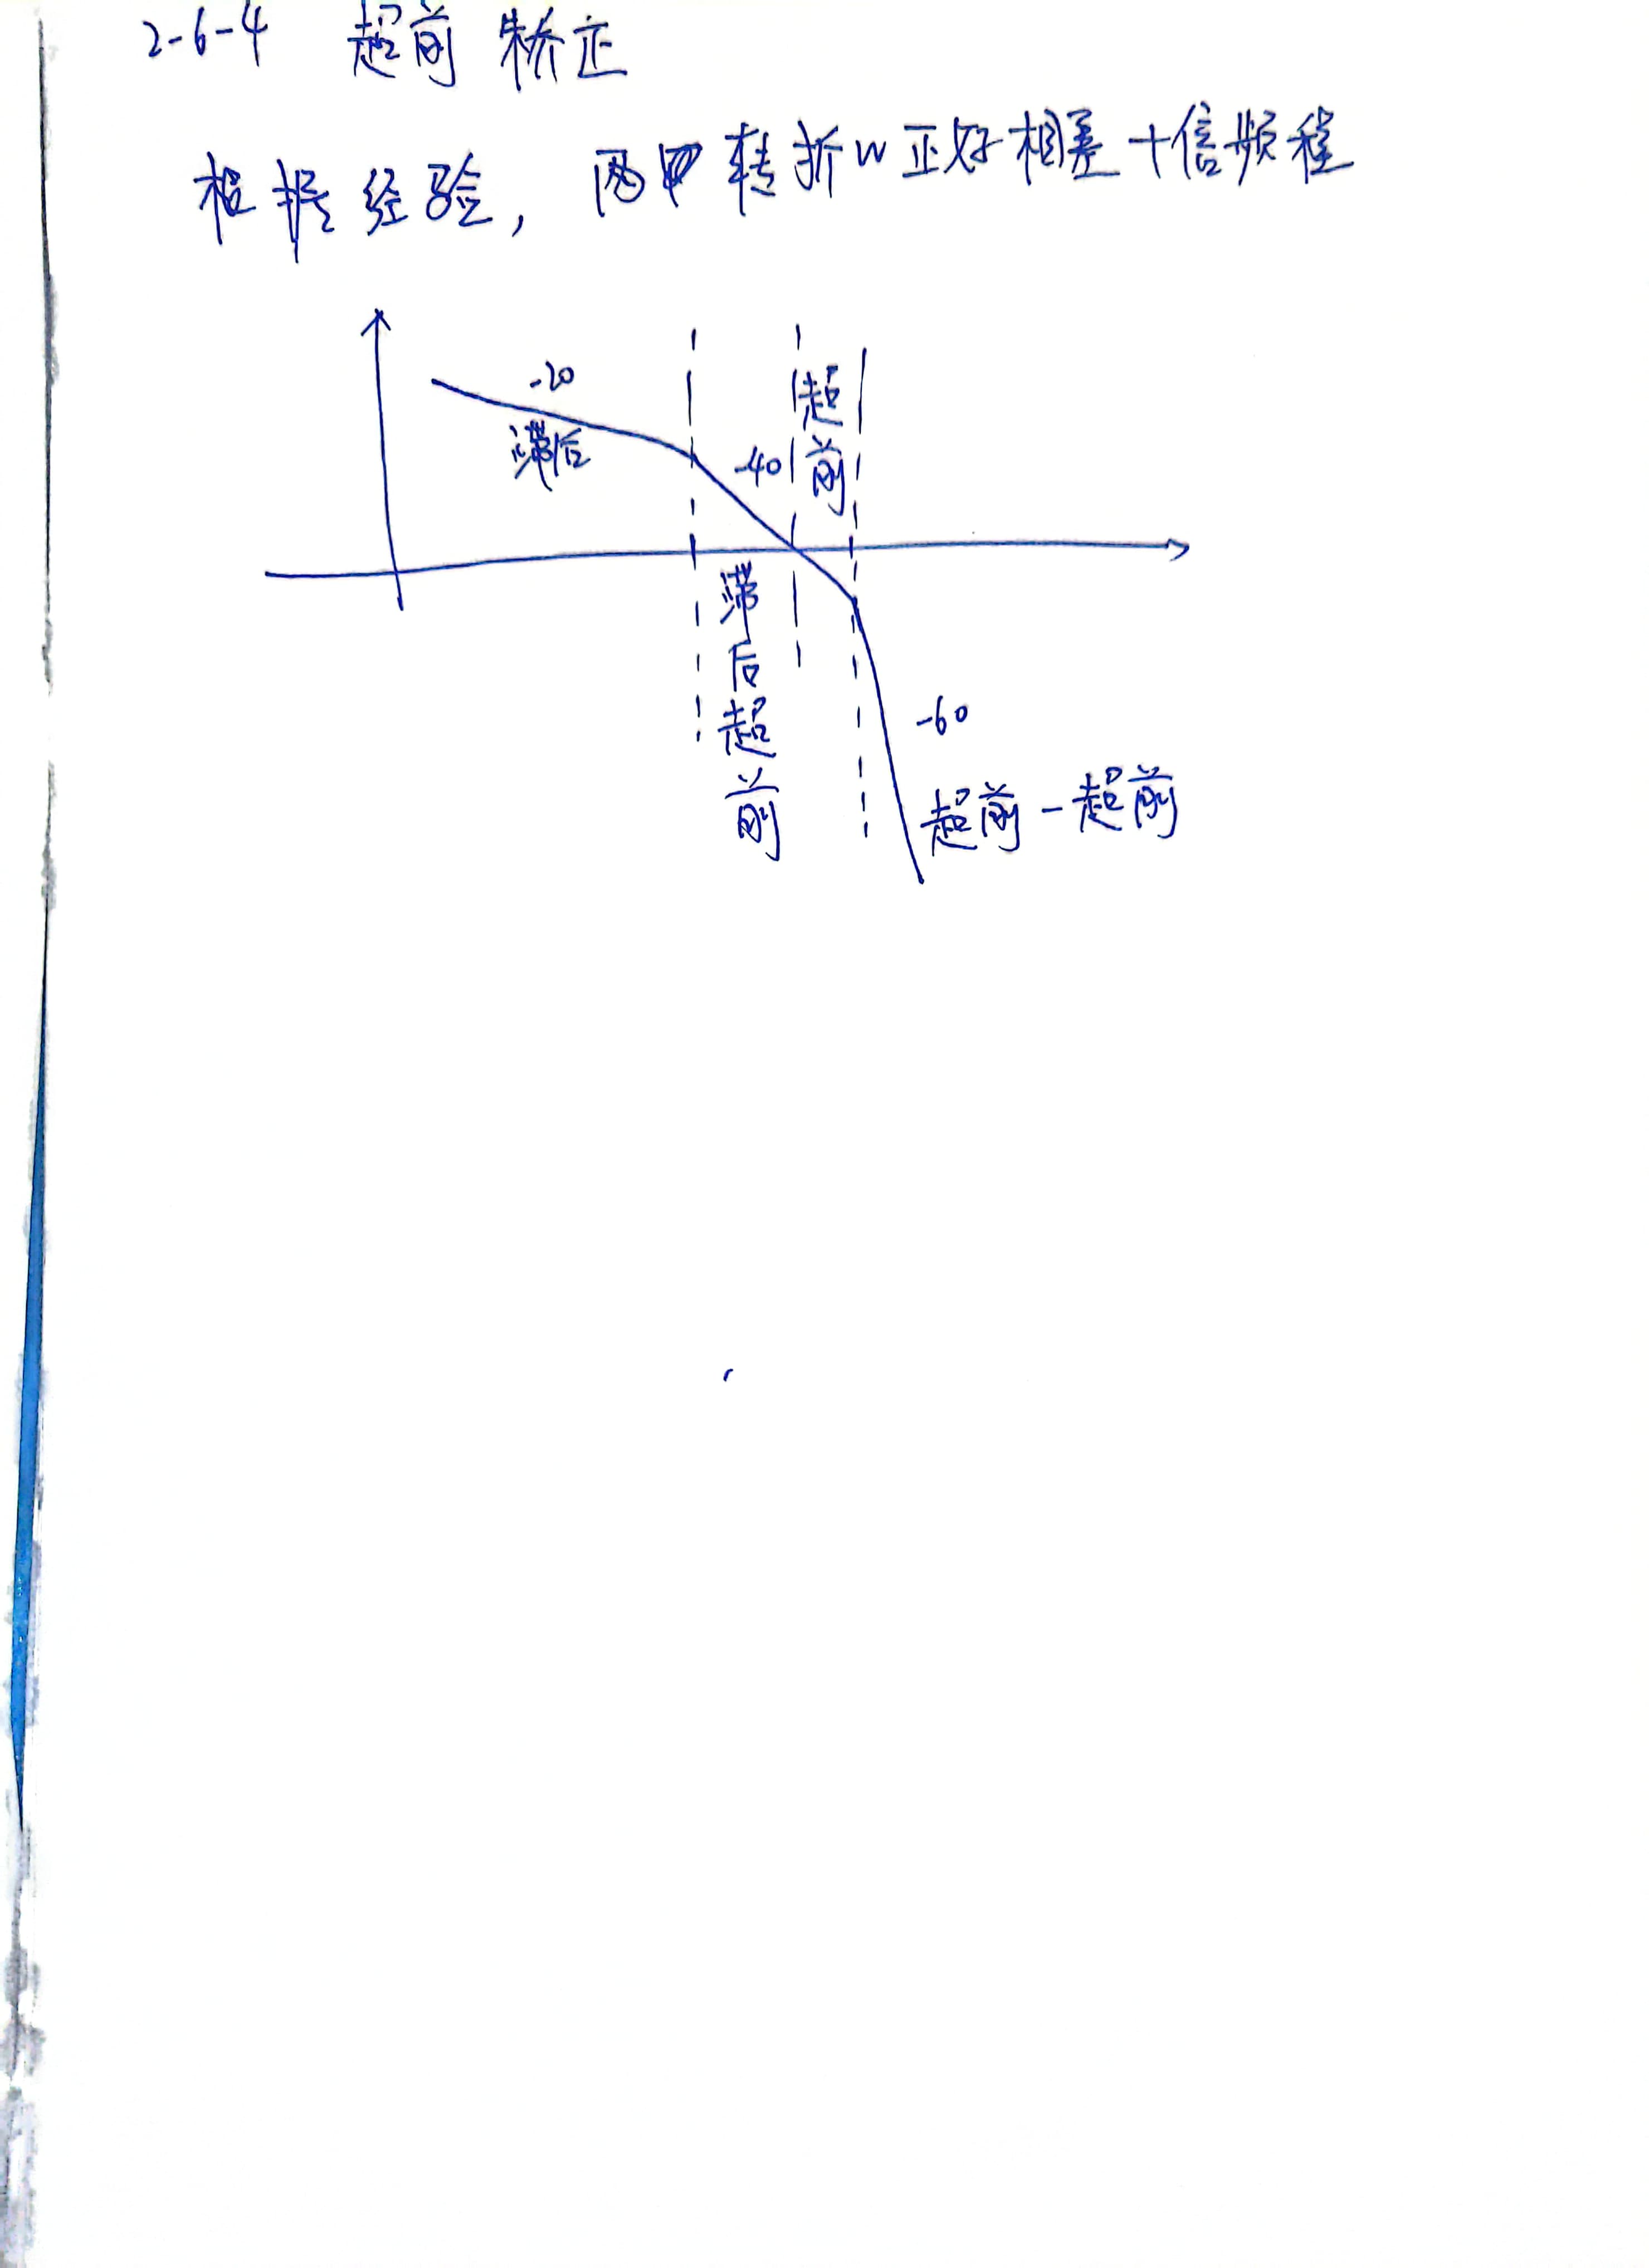 2-6-4 超前 矫正
根据经验, 两 转折w正好相差十倍频程
-20
滞后
-40
超前
滞后超前
-60
超前-超前